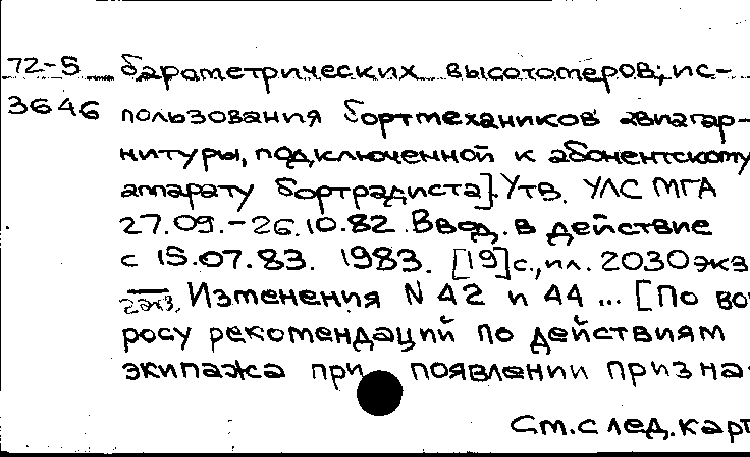 72-5 барометрических высотомеров; ис-
3646 пользования бортмехаников авиагар-
нитуры, подключенной к абонентскому
аппарату бортрадиста]. Утв. УЛС МГА
27.09.-26.10.82. Ввод. в действие
с 15.07.83. 1983. [19]с., ил. 2030 экз
2 экз. Изменения N 42 и 44 ... [По воп
росу рекомендаций по действиям
экипажа при появлении призна-
См. след. карт